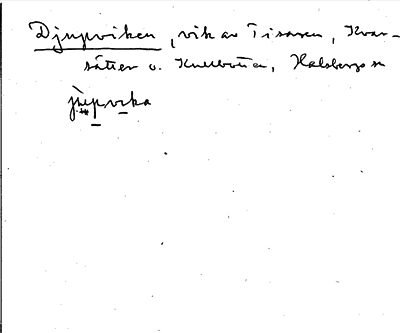 Djupviken, vik av Tisaren, Kvar-
sätter o. , Halsbergs sn
jupvika